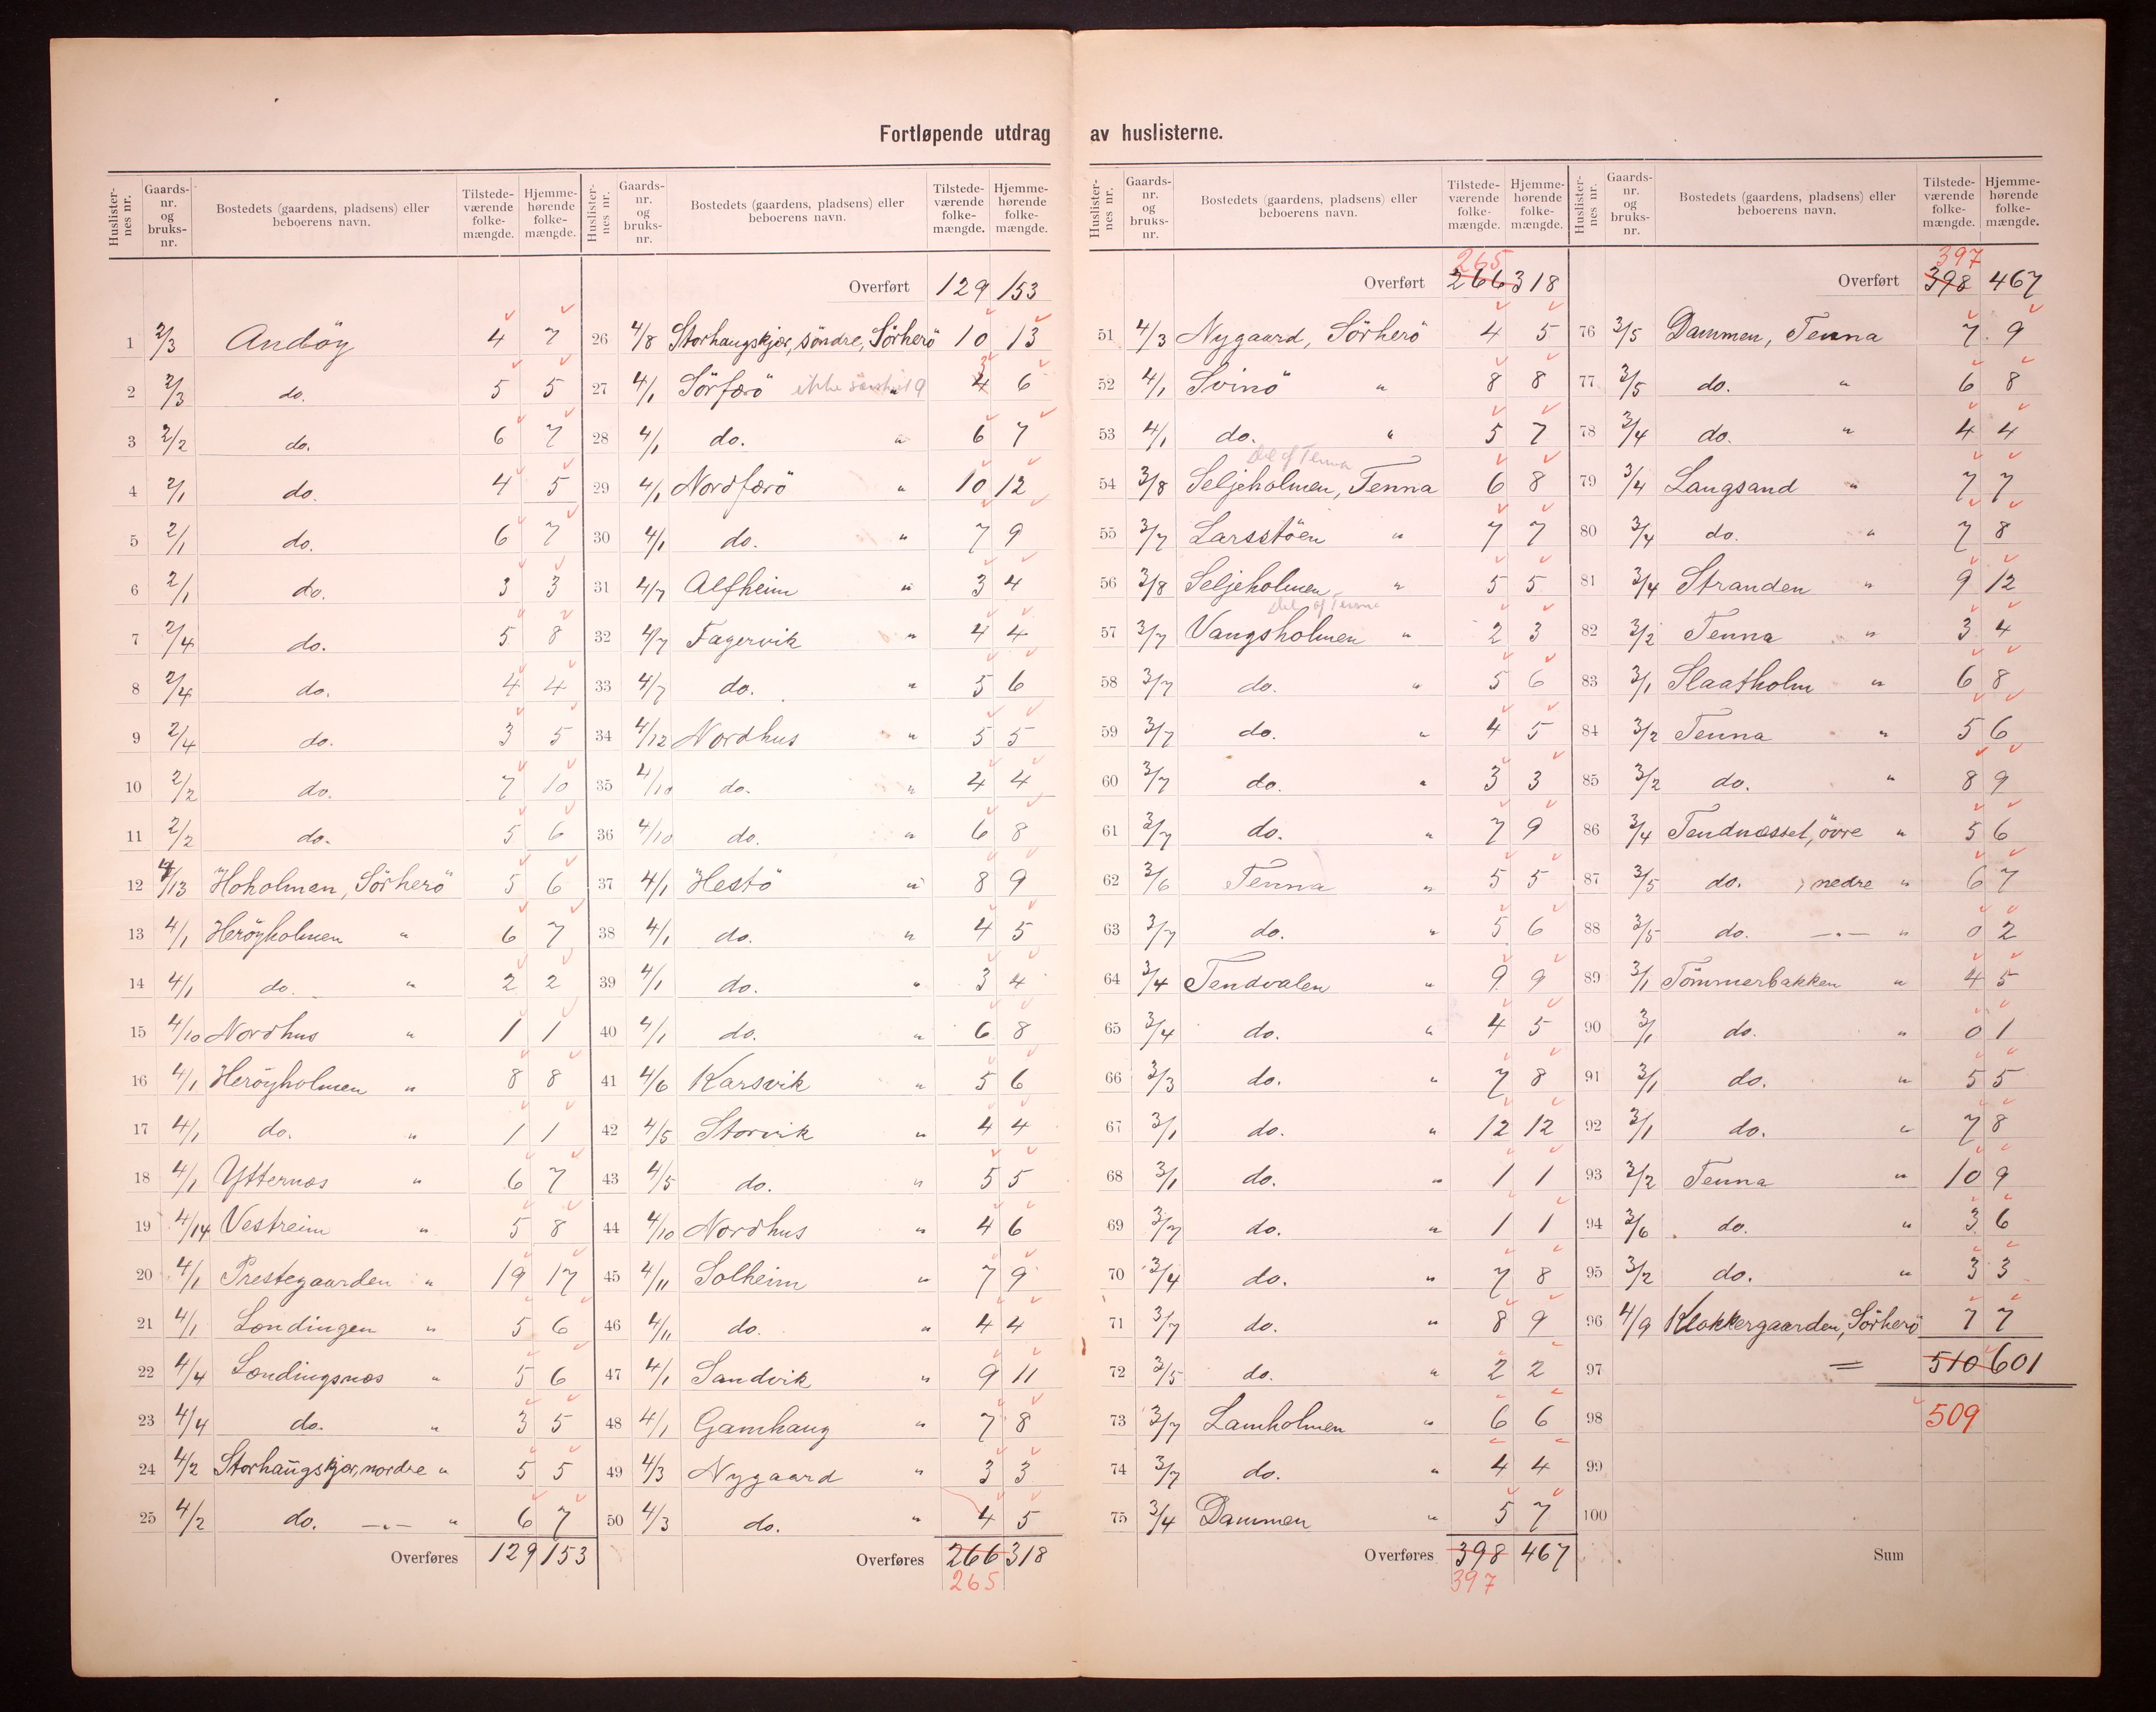 Fortløpende utdrag av huslisterne.
Huslisternes nr. Gaards-nr. og bruks-nr. Bostedets (gaardens, pladsens) eller beboerens navn. Tilstedeværende folkemængde. Hjemmehørende folkemængde.
1 2/3 Andöy 4 7
2 2/3 do. 5 5
3 2/2 do. 6 7
4 2/1 do. 4 5
5 2/1 do. 6 7
6 2/1 do. 3 3
7 2/4 do. 5 8
8 2/4 do. 4 4
9 2/4 do. 3 5
10 2/2 do. 7 10
11 2/2 do. 5 6
12 4/13 Hoholman, Sörherö 5 6
13 4/1 Heröyholmen " 6 7
14 4/1 do. " 2 2
15 4/10 Nordhus " 1 1
16 4/1 Heröyholmen " 8 8
17 4/1 do. " 1 1
18 4/1 Ytternes " 6 7
19 4/14 Vestreim " 5 8
20 4/1 Prestegaarden " 19 17
21 4/1 Lendingen " 5 6
22 4/4 Lendingsnes " 5 6
23 4/4 do. " 3 5
24 4/2 Storhaugskjær, nordre " 5 5
25 4/2 do. —"— " 6 7
Overføres 129 153
Huslisternes nr. Gaards-nr. og bruks-nr. Bostedets (gaardens, pladsens) eller beboerens navn. Tilstedeværende folkemængde. Hjemmehørende folkemængde.
Overført 129 153
26 4/8 Storhaugskjær, söndre, Sörherö 10 13
27 4/1 Sörferö ikke " 4 3 6
28 4/1 do. " 6 7
29 4/1 Nordferö " 10 12
30 4/1 do. " 7 9
31 4/7 Alfheim " 3 4
32 4/7 Fagervik " 4 4
33 4/7 do. " 5 6
34 4/12 Nordhus " 5 5
35 4/10 do. " 4 4
36 4/10 do. " 6 8
37 4/1 Hestö " 8 9
38 4/1 do. " 4 5
39 4/1 do. " 3 4
40 4/1 do. " 6 8
41 4/6 Karsvik " 5 6
42 4/5 Storvik " 4 4
43 4/5 do. " 5 5
44 4/10 Nordhus " 4 6
45 4/11 Solheim " 7 9
46 4/11 do. " 4 4
47 4/1 Sandvik " 9 11
48 4/1 Gamhaug " 7 8
49 4/3 Nygaard " 3 3
50 4/3 do. " 4 5
Overføres 266 318
265
Huslisternes nr. Gaards-nr. og bruks-nr. Bostedets (gaardens, pladsens) eller beboerens navn. Tilstedeværende folkemængde. Hjemmehørende folkemængde.
265
Overført 266 318
51 4/3 Nygaard, Sörherö 4 5
52 4/1 Svinö " 8 8
53 4/1 do. " 5 7
Del af Tenna
54 3/8 Seljeholmen, Tenna 6 8
55 3/7 Larsstöen " 7 7
56 3/8 Seljeholmen " 5 5
Del af Tenna
57 3/7 Vangsholmen " 2 3
58 3/7 do. " 5 6
59 3/7 do. " 4 5
60 3/7 do. " 3 3
61 3/7 do. " 7 9
62 3/6 Tenna " 5 5
63 3/7 do. " 5 6
64 3/4 Tendvalen " 9 9
65 3/4 do. " 4 5
66 3/3 do. " 7 8
67 3/1 do. " 12 12
68 3/1 do. " 1 1
69 3/7 do. " 1 1
70 3/4 do. " 7 8
71 3/7 do. " 8 9
72 3/5 do. " 2 2
73 3/7 Lamholmen " 6 6
74 3/7 do. " 4 4
75 3/4 Dammen " 5 7
Overføres 398 467
397
Huslisternes nr. Gaards-nr. og bruks-nr. Bostedets (gaardens, pladsens) eller beboerens navn. Tilstedeværende folkemængde. Hjemmehørende folkemængde.
397
Overført 398 467
76 3/5 Dammen, Tenna 7 9
77 3/5 do. " 6 8
78 3/4 do. " 4 4
79 3/4 Langsand " 7 7
80 3/4 do. " 7 8
81 3/4 Stranden " 9 12
82 3/2 Tenna " 3 4
83 3/1 Slaatholm " 6 8
84 3/2 Tenna " 5 6
85 3/2 do. " 8 9
86 3/4 Tendnesset, övre " 5 6
87 3/5 do. , nedre " 6 7
88 3/5 do. —"— " 0 2
89 3/1 Tömmerbakken " 4 5
90 3/1 do. " 0 1
91 3/1 do. " 5 5
92 3/1 do. " 7 8
93 3/2 Tenna " 10 9
94 3/6 do. " 3 6
95 3/2 do. " 3 3
96 4/9 Klokkergaarden, Sörherö 7 7
97 = 510 601
98 509
99
100
Sum